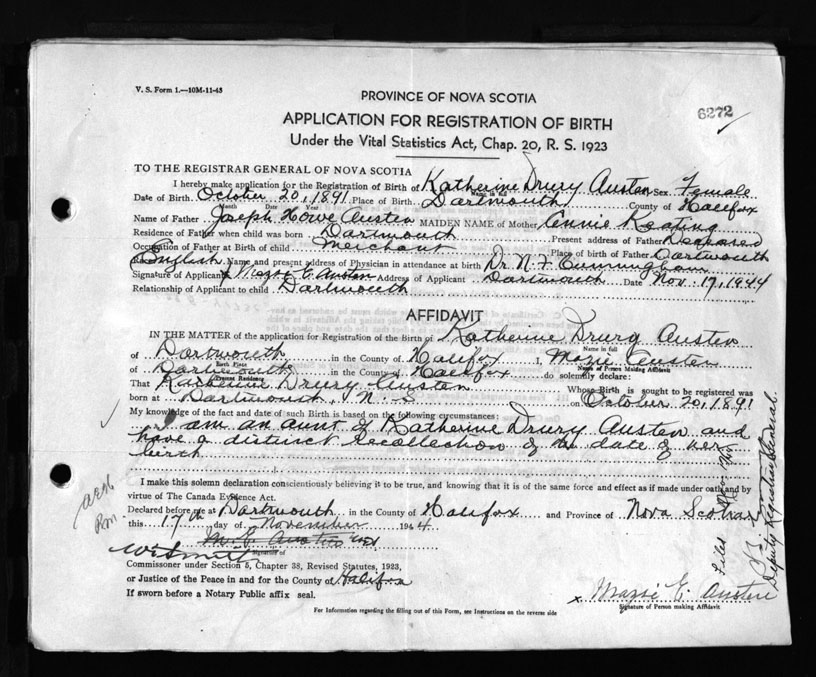 V. S. Form 1.—10M-11-43
PROVINCE OF NOVA SCOTIA
6272
APPLICATION FOR REGISTRATION OF BIRTH
Under the Vital Statistics Act, Chap. 20, R. S. 1923
TO THE REGISTRAR GENERAL OF NOVA SCOTIA
I hereby make application for the Registration of Birth of Katherine Drury Austen Sex Female
Name in full
Date of Birth October 20, 1891 Place of Birth Dartmouth County of Halifax
Month Date Year
Name of Father Joseph Howe Austen MAIDEN NAME of Mother Annie Keating
Residence of Father when child was born Dartmouth Present address of Father Deceased
Occupation of Father at Birth of child Merchant Place of birth of Father Dartmouth
English Name and present address of Physician in attendance at birth Dr. N. F. Cunningham
Signature of Applicant Mazie E. Austen Address of Applicant Dartmouth Date Nov. 17, 1944
Relationship of Applicant to child Dartmouth
AFFIDAVIT
IN THE MATTER of the application for Registration of the Birth of Katherine Drury Austen
Name in full
of Dartmouth in the County of Halifax I, Mazie Austen
Birth Place Name of Person Making Affidavit
of Dartmouth in the County of Halifax do solemnly declare:
Present Residence
That Katherine Drury Austen Whose Birth is sought to be registered was
born at Dartmouth, N. S. on October 20, 1891
My knowledge of the fact and date of such Birth is based on the following circumstances:
I am an aunt of Katherine Drury Austen and
have a distinct recollection of the date of her
birth
I make this solemn declaration conscientiously believing it to be true, and knowing that it is of the same force and effect as if made under oath and by
virtue of The Canada Evidence Act.
Declared before me at Dartmouth in the County of Halifax and Province of Nova Scotia
this 17th day of November 1944
M. E. Austen
Signature of
Commissioner under Section 5, Chapter 38, Revised Statutes, 1923,
or Justice of the Peace in and for the County of Halifax
If sworn before a Notary Public affix seal.
x Mazie E. Austen
Signature of Person making Affidavit
For Information regarding the filling out of this Form, see Instructions on the reverse side
Filed
Deputy Registrar General.